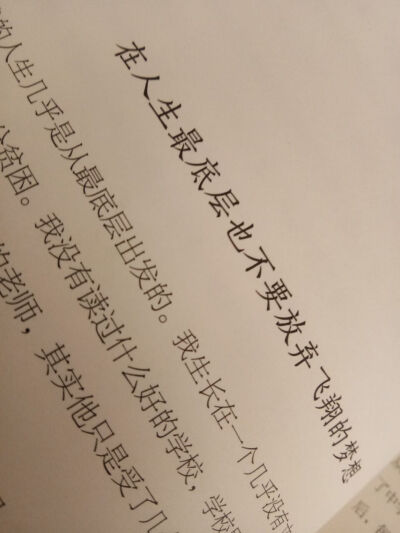 在人生最底层也不要放弃飞翔的梦想
的人生几乎是从最底层出发的。我生长在一个几乎没有
贫困。我没有读过什么好的学校，学校
的老师，其实他只是受了几
了中
后，